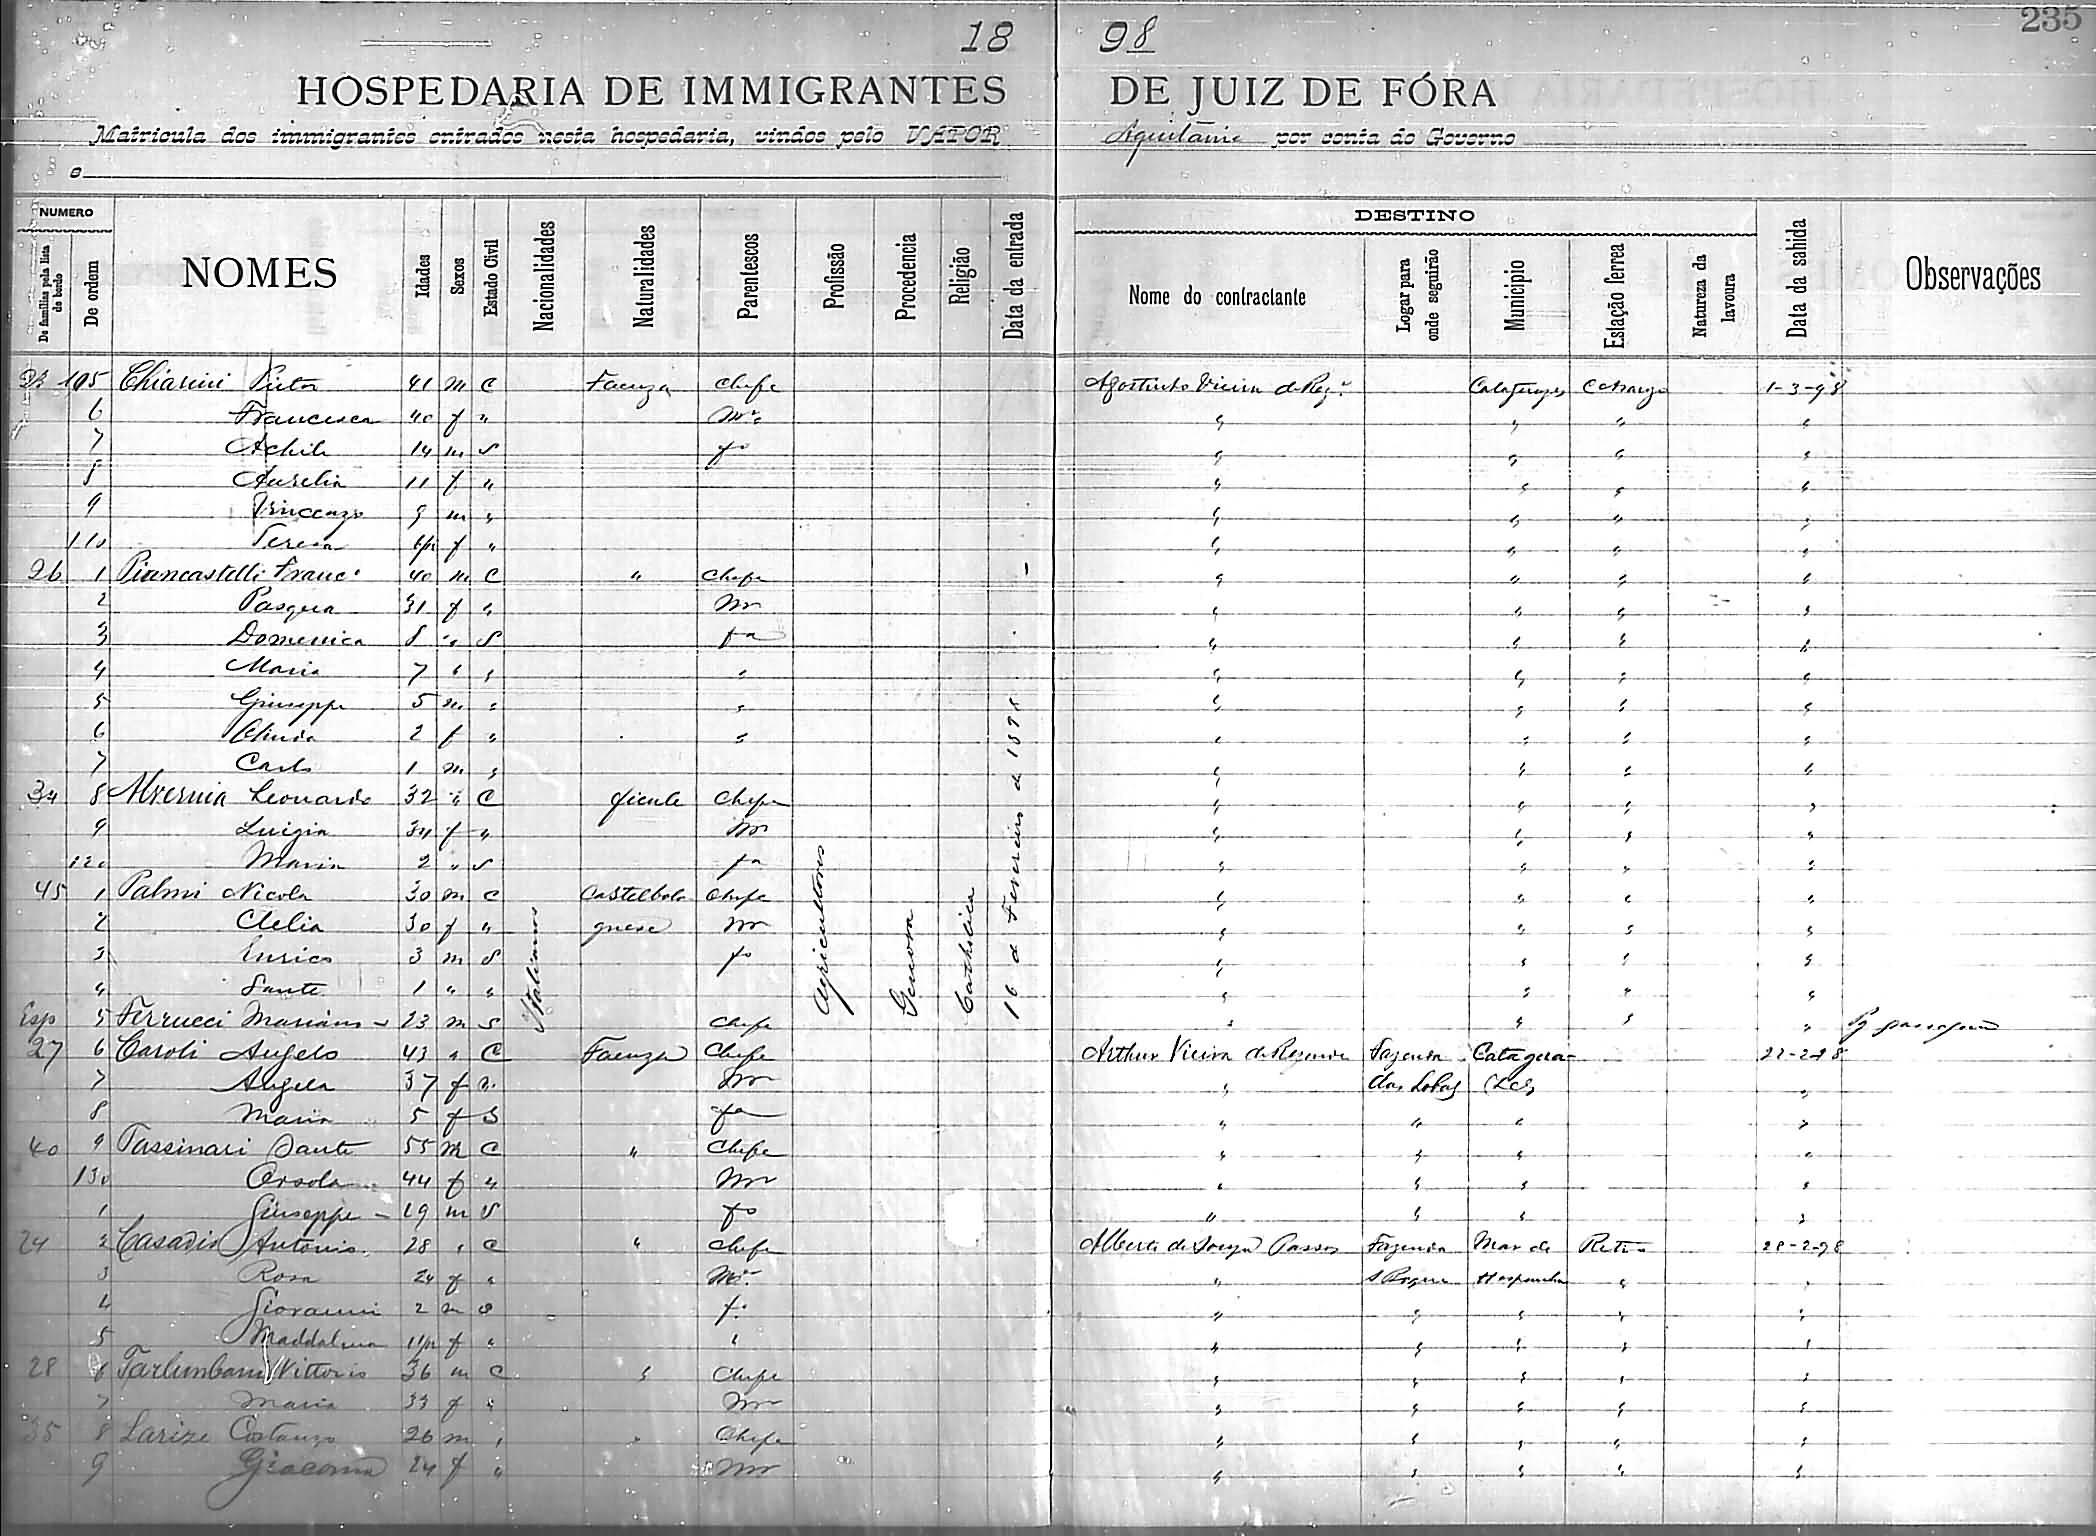 235
18 98
HOSPEDARIA DE IMMIGRANTES DE JUIZ DE FÓRA
Matricula dos immigrantes entrados nesta hospedaria, vindos pelo VAPOR Aquitanie por conta do Governo
e
NUMERO DESTINO
De familias pela lista de bordo De ordem NOMES Idades Sexos Estado Civil Nacionalidades Naturalidades Parentescos Profissão Procedencia Religião Data da entrada Nome do contractante Logar para onde seguirão Municipio Estação ferrea Natureza da lavoura Data da sahida Observações
105 Chiarini 41 m C Faenza Chefe Agostinho Vieira de 1-3-98
6 Francesca 40 f " " " " "
7 Achile 14 m S fo " " " "
8 Aurelia 11 f " " " " "
9 Vincenzo 9 m " " " " "
110 Teresa f " " " " "
26 1 Piancastelli Franc. 40 m C " Chefe " " " "
2 Pasqua 31 f " Mr " " " "
3 Domenica 8 " S fa " " " "
4 Maria 7 " " " " " " "
5 Giuseppe 5 m " " " " " "
6 2 f " " " " " "
7 Carlo 1 m " " " " "
34 8 Leonardo 32 " C Chefe " " " "
9 Luigia 34 f " Mr " " " "
120 Maria 2 " S fa " " " "
45 1 Palmi Nicola 30 m C Castelbolo Chefe " " " "
2 Clelia 30 f " gnese Mr " " " "
3 Enrico 3 m S fo " " " "
4 Sante 1 " " " " " "
Italianos Agricultores Genova Catholica 16 de Fevereiro de 1898
Esp 5 Ferrucci Mariano 23 m S Chefe " " " "
27 6 Caroli Angelo 43 " C Faenza Chefe Arthur Vieira de Rezende Fazenda Catagua- 22-2-98
7 Angela 37 f ". Mr " das "
8 Maria 5 f S fa " " " "
40 9 Tassinari Sante 55 m C " Chefe " " " "
130 Orsola 44 f " Mr " " " "
1 Giuseppe 19 m S fo " " " "
24 2 Casadio Antonio 28 " C " Chefe Alberto de Souza Passos Fazenda Mar de Retiro 28-2-98
3 Rosa 24 f " Mr. " Hespanha " "
4 Giovanni 2 m S f. " " " " "
5 Maddalena f " " " " " " "
28 6 Vittorio 36 m C " Chefe " " " " "
7 Maria 33 f " Mr " " " " "
35 8 Larize Costanzo 26 m " " Chefe " " " " "
9 Giacoma 24 f " Mr " " " " "